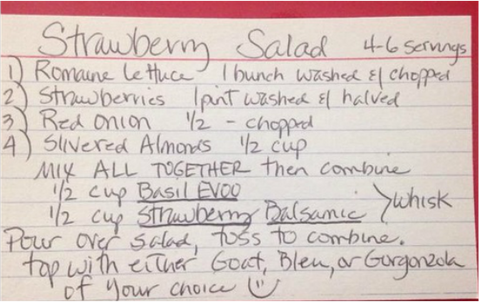 Strawberry Salad 4-6 servings
1) Romaine lettuce 1 bunch washed & chopped
2) Strawberries 1 pint washed & halved
3) Red onion 1/2 - chopped
4) Slivered Almonds 1/2 cup
MIX ALL TOGETHER then combine
1/2 cup Basil EVOO
1/2 cup Strawberry Balsamic > whisk
Pour over salad, toss to combine.
top with either Goat, Bleu, or Gorgonzola
of your choice ☺